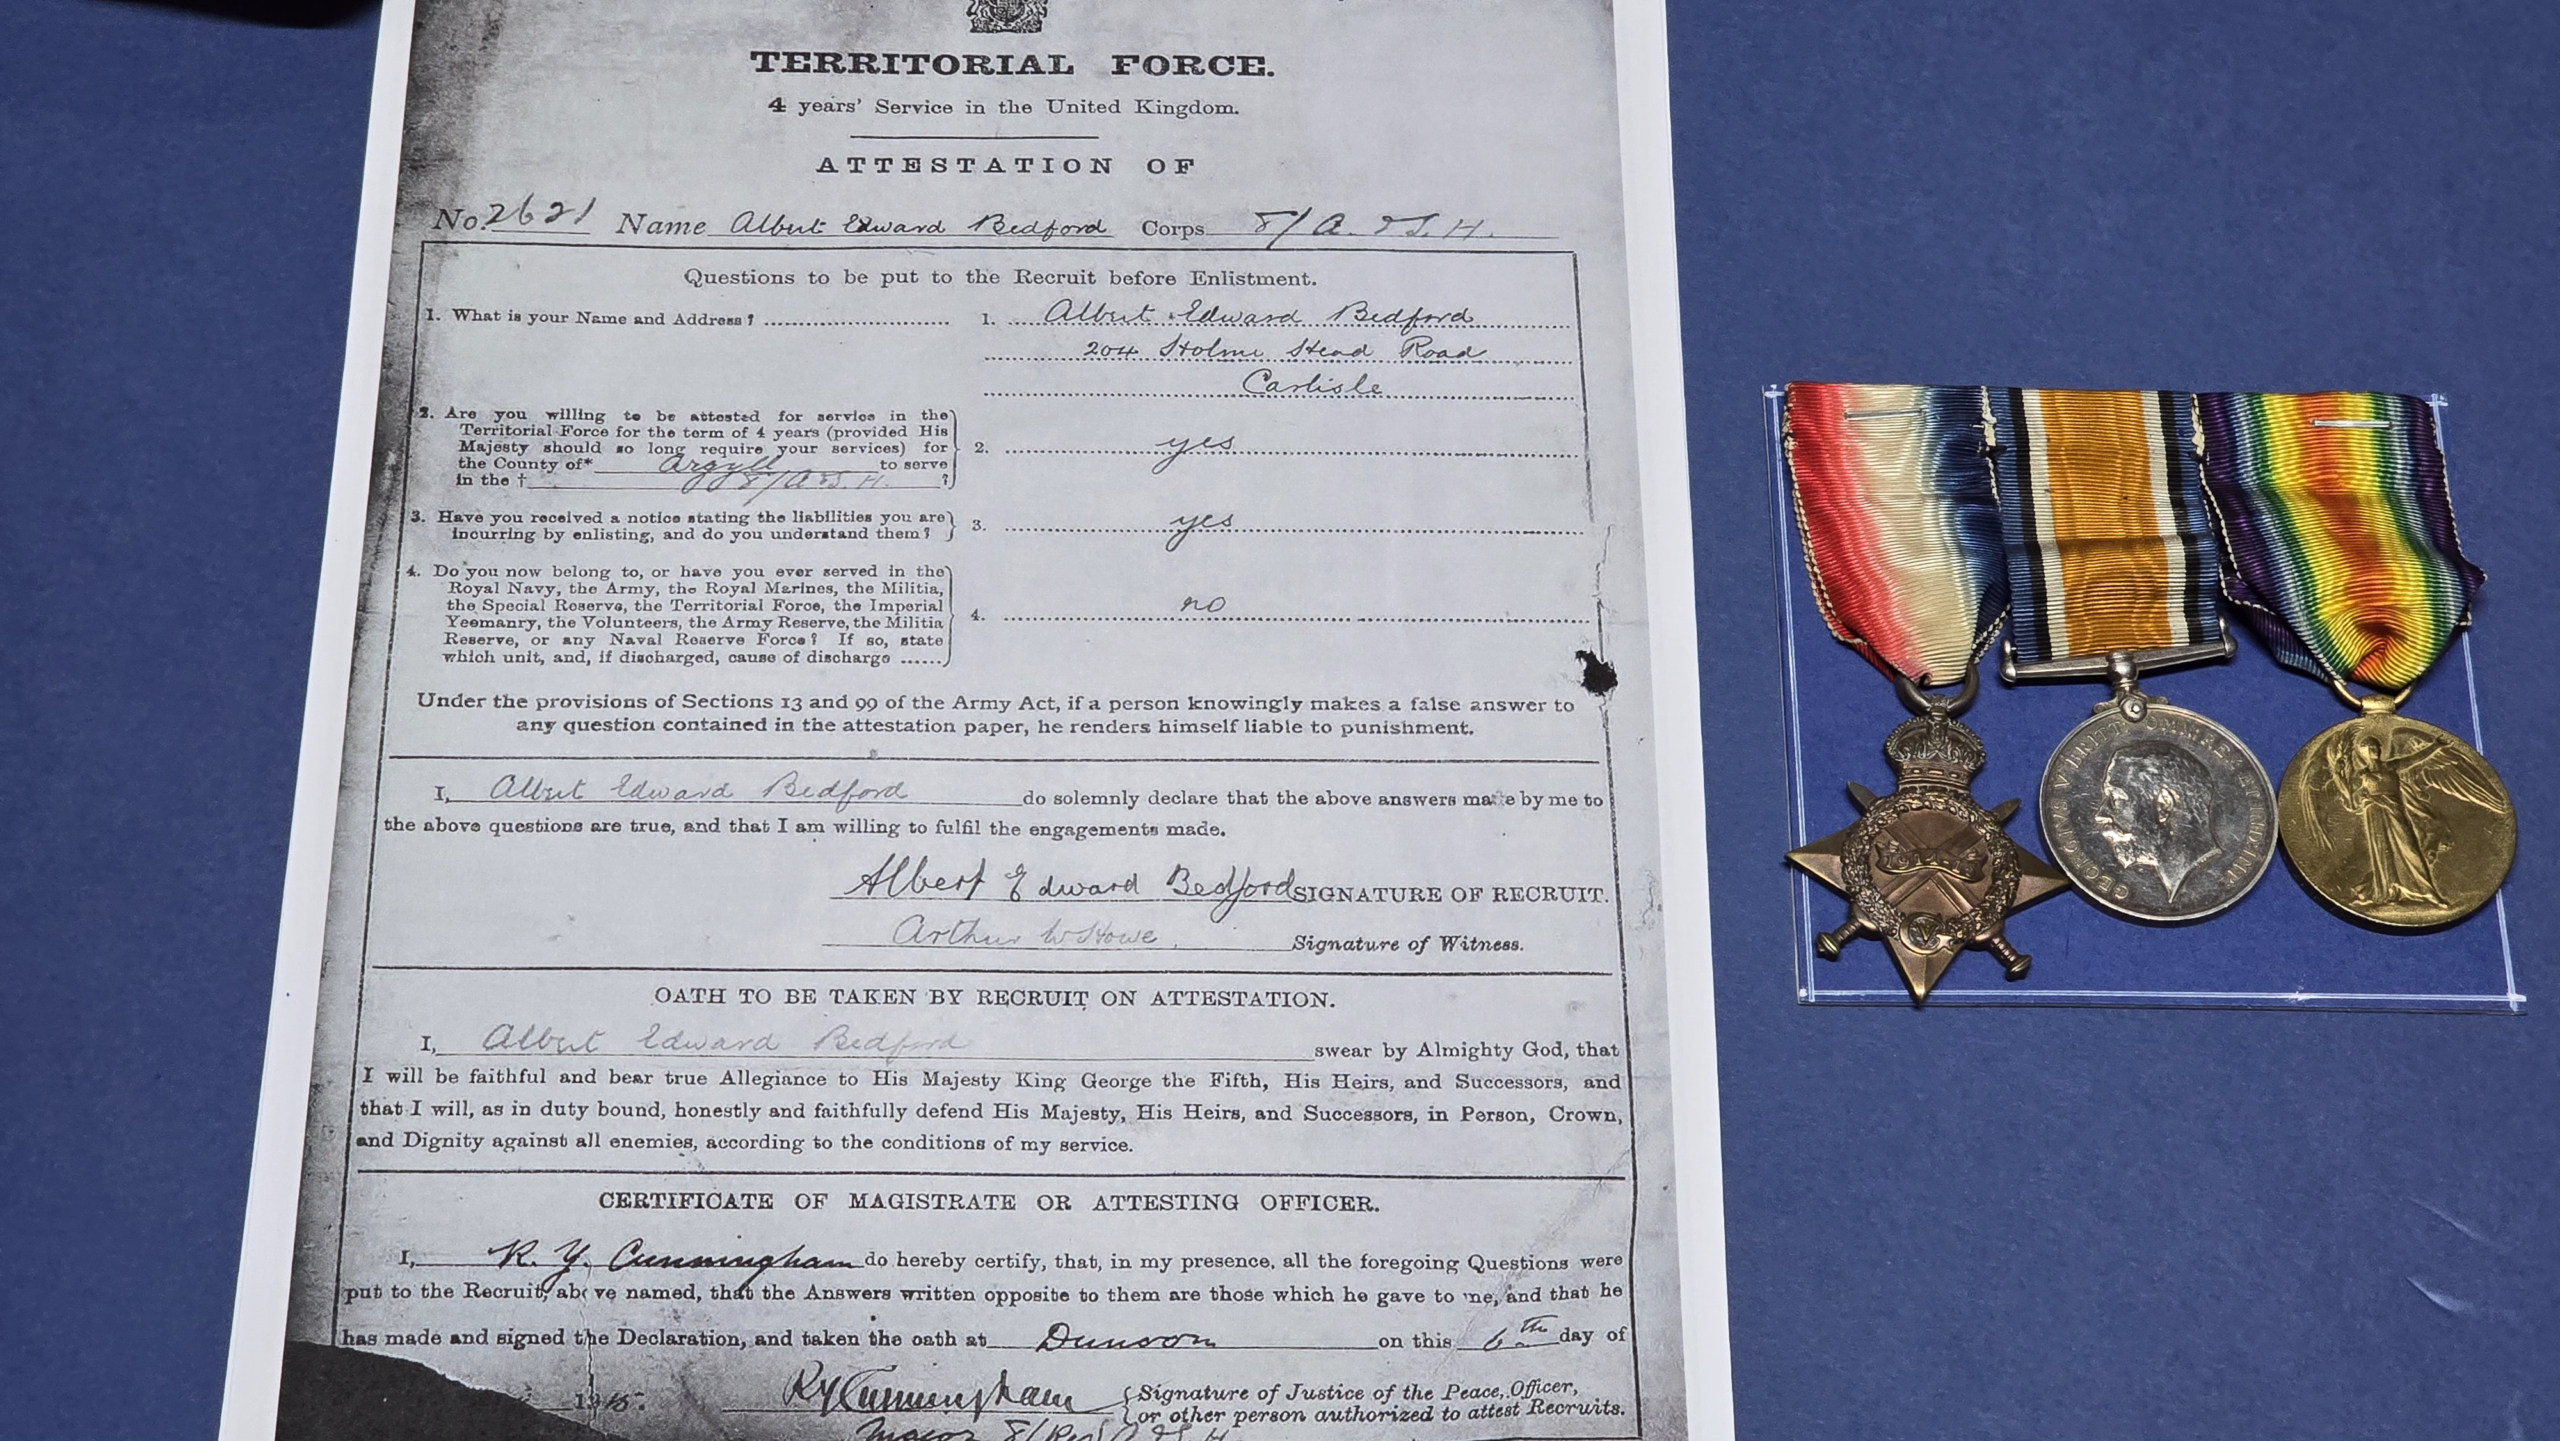 TERRITORIAL FORCE.
4 years' Service in the United Kingdom.
ATTESTATION OF
No. 2621 Name Albert Edward Bedford Corps 8/ A. & S. H.
Questions to be put to the Recruit before Enlistment.
1. What is your Name and Address? 1. Albert Edward Bedford
204 Holme Head Road
Carlisle
2. Are you willing to be attested for service in the
Territorial Force for the term of 4 years (provided His
Majesty should so long require your services) for
the County of* Argyll to serve
in the † 8/A&S. H. ?
2. yes
3. Have you received a notice stating the liabilities you are
incurring by enlisting, and do you understand them?
3. yes
4. Do you now belong to, or have you ever served in the
Royal Navy, the Army, the Royal Marines, the Militia,
the Special Reserve, the Territorial Force, the Imperial
Yeomanry, the Volunteers, the Army Reserve, the Militia
Reserve, or any Naval Reserve Force? If so, state
which unit, and, if discharged, cause of discharge ......
4. no
Under the provisions of Sections 13 and 99 of the Army Act, if a person knowingly makes a false answer to
any question contained in the attestation paper, he renders himself liable to punishment.
I, Albert Edward Bedford do solemnly declare that the above answers made by me to
the above questions are true, and that I am willing to fulfil the engagements made.
Albert Edward Bedford SIGNATURE OF RECRUIT.
Arthur W Howe Signature of Witness.
OATH TO BE TAKEN BY RECRUIT ON ATTESTATION.
I, Albert Edward Bedford swear by Almighty God, that
I will be faithful and bear true Allegiance to His Majesty King George the Fifth, His Heirs, and Successors, and
that I will, as in duty bound, honestly and faithfully defend His Majesty, His Heirs, and Successors, in Person, Crown,
and Dignity against all enemies, according to the conditions of my service.
CERTIFICATE OF MAGISTRATE OR ATTESTING OFFICER.
I, R. Y. Cunningham do hereby certify, that, in my presence, all the foregoing Questions were
put to the Recruit, above named, that the Answers written opposite to them are those which he gave to me, and that he
has made and signed the Declaration, and taken the oath at Dunoon on this 6th day of
1915. RYCunningham Signature of Justice of the Peace, Officer,
or other person authorized to attest Recruits.
Major 8/(Res) A & S H
1914-15
GEORGIVS V BRITT: OMN: REX ET IND: IMP: